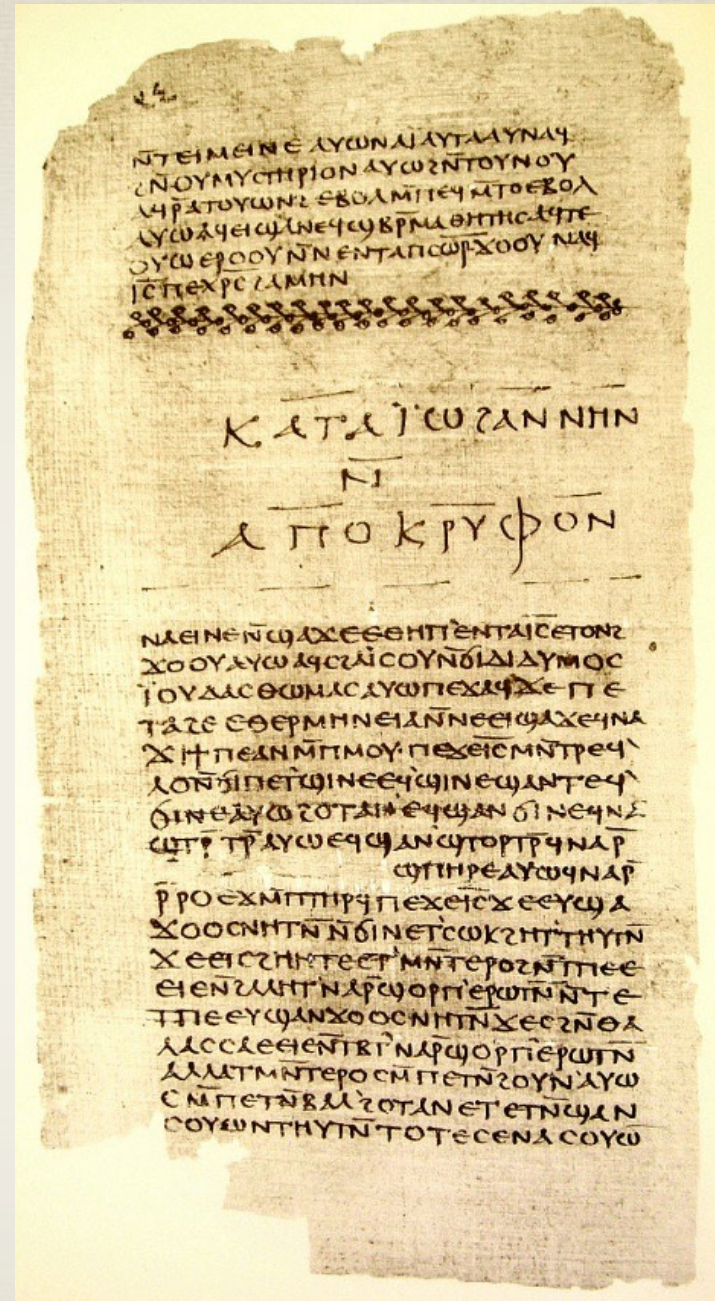 ⲛ̅ⲧⲉⲓⲙⲉⲓⲛⲉ ⲁⲩⲱ ⲛⲁⲓ ⲁⲩⲧⲁⲁⲩ ⲛⲁϥ
ϩⲛ̅ⲟⲩⲙⲩⲥⲧⲏⲣⲓⲟⲛ ⲁⲩⲱ ϩⲛ̅ⲧⲟⲩⲛⲟⲩ
ⲁϥⲣ̅ⲁⲧⲟⲩⲱⲛϩ ⲉⲃⲟⲗ ⲙ̅ⲡⲉϥⲙⲧⲟ ⲉⲃⲟⲗ
ⲁⲩⲱ ⲁϥⲉⲓ ϣⲁ ⲛⲉϥϣⲃⲣ̅ⲙⲁⲑⲏⲧⲏⲥ ⲁϥⲧⲉ
ⲟⲩⲱ ⲉⲣⲟⲟⲩ ⲛ̅ⲛⲉⲛⲧⲁⲡⲥⲱ̅ⲣ̅ ϫⲟⲟⲩ ⲛⲁϥ
ⲓ̅ⲥ̅ ⲡⲉⲭⲣ̅ⲥ̅ ϩⲁⲙⲏⲛ
ⲕⲁⲧⲁ ⲓ̈ⲱϩⲁⲛⲛⲏⲛ
ⲛ̅ⲓ̅
ⲁⲡⲟⲕⲣⲩⲫⲟⲛ
ⲛⲁⲉⲓ ⲛⲉ ⲛ̅ϣⲁϫⲉ ⲉⲑⲏⲡ' ⲉⲛⲧⲁⲓ̅ⲥ̅ ⲉⲧⲟⲛϩ
ϫⲟⲟⲩ ⲁⲩⲱ ⲁϥⲥϩⲁⲓ̈ⲥⲟⲩ ⲛ̅ϭⲓ ⲇⲓⲇⲩⲙⲟⲥ
ⲓ̈ⲟⲩⲇⲁⲥ ⲑⲱⲙⲁⲥ ⲁⲩⲱ ⲡⲉϫⲁϥ ϫⲉ ⲡⲉ
ⲧⲁϩⲉ ⲉⲑⲉⲣⲙⲏⲛⲉⲓⲁ ⲛ̅ⲛⲉⲉⲓϣⲁϫⲉ ϥⲛⲁ
ϫⲓϯⲡⲉ ⲁⲛ ⲙ̅ⲡⲙⲟⲩ· ⲡⲉϫⲉ ⲓ̅ⲥ̅ ⲙⲛ̅ⲧⲣⲉϥ'
ⲗⲟ ⲛ̅ϭⲓ ⲡⲉⲧ'ϣⲓⲛⲉ ⲉϥ'ϣⲓⲛⲉ ϣⲁⲛⲧⲉϥ'
ϭⲓⲛⲉ ⲁⲩⲱ ϩⲟⲧⲁⲛ' ⲉϥϣⲁⲛϭⲓⲛⲉ ϥⲛⲁ
ϣⲧⲣ̅ⲧⲣ̅ ⲁⲩⲱ ⲉϥϣⲁⲛϣⲧⲟⲣⲧⲣ̅ ϥⲛⲁⲣ̅
ϣⲡⲏⲣⲉ ⲁⲩⲱ ϥⲛⲁⲣ̅
ⲣ̅ⲣⲟ ⲉϫⲙ̅ⲡⲧⲏⲣϥ ⲡⲉϫⲉ ⲓ̅ⲥ̅ ϫⲉ ⲉⲩϣⲁ
ϫⲟⲟⲥ ⲛⲏⲧⲛ̅ ⲛ̅ϭⲓ ⲛⲉⲧ'ⲥⲱⲕ ϩⲏⲧ'ⲧⲏⲩⲧⲛ̅
ϫⲉ ⲉⲓⲥϩⲏⲏⲧⲉ ⲉⲧ'ⲙⲛ̅ⲧⲉⲣⲟ ϩⲛ̅ⲧⲡⲉ ⲉ
ⲉⲓⲉ ⲛ̅ϩⲁⲗⲏⲧ' ⲛⲁⲣ̅ϣⲟⲣⲡ' ⲉⲣⲱⲧⲛ̅ ⲛ̅ⲧⲉ
ⲧⲡⲉ ⲉⲩϣⲁⲛϫⲟⲟⲥ ⲛⲏⲧⲛ̅ ϫⲉ ⲥϩⲛ̅ⲑⲁ
ⲗⲁⲥⲥⲁ ⲉⲉⲓⲉ ⲛ̅ⲧⲃⲧ' ⲛⲁⲣ̅ϣⲟⲣⲡ' ⲉⲣⲱⲧⲛ̅
ⲁⲗⲗⲁ ⲧⲙⲛ̅ⲧⲉⲣⲟ ⲥⲙ̅ⲡⲉⲧⲛ̅ϩⲟⲩⲛ' ⲁⲩⲱ
ⲥⲙ̅ⲡⲉⲧⲛ̅ⲃⲁⲗ' ϩⲟⲧⲁⲛ ⲉⲧⲉⲧⲛ̅ϣⲁⲛ
ⲥⲟⲩⲱⲛ ⲧⲏⲩⲧⲛ̅ ⲧⲟⲧⲉ ⲥⲉⲛⲁⲥⲟⲩⲱ